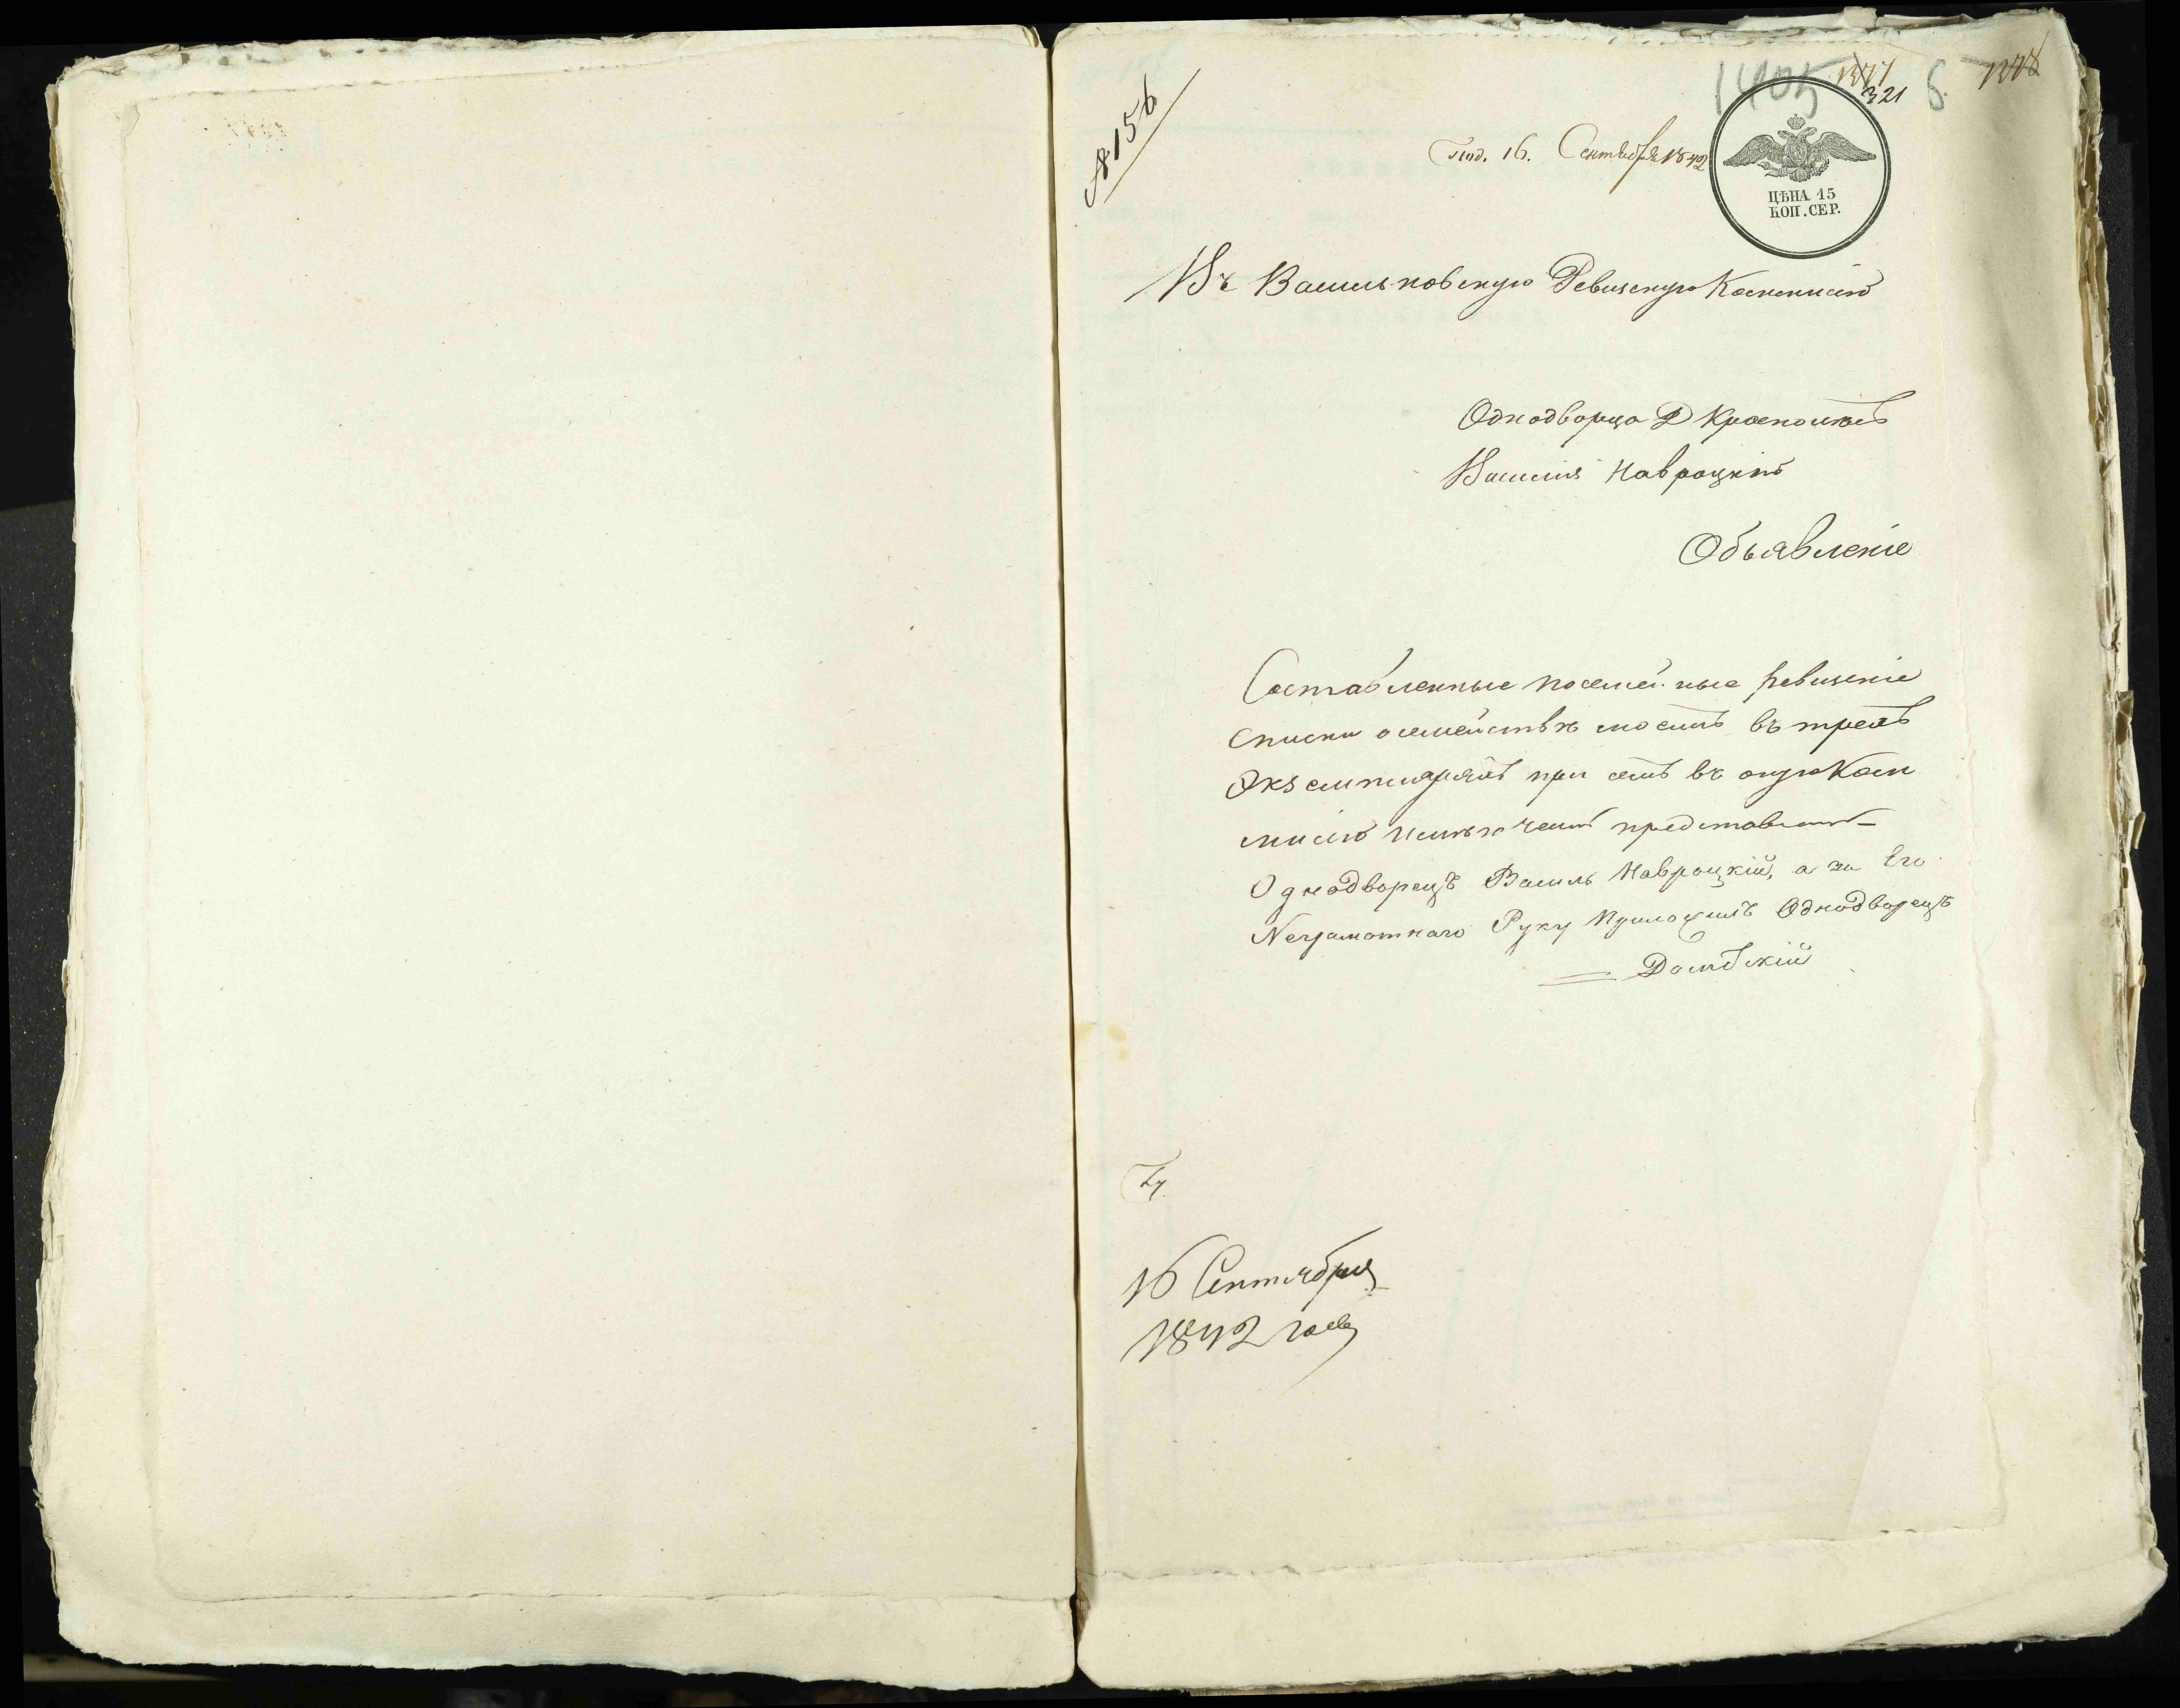 1405 1377
321 6. 1378
№ 156
Под. 16. Сентября 1842
ЦѢНА 15
КОП. СЕР.
Въ Васильковскую Ревизскую Коммисію
Однодворца Д
Василія Навроцкаго
Объявленіе
Составленные посемейные ревизскіе
списки о семействѣ моемъ въ трехъ
Экземплярахъ при семъ въ оную Ком
мисію представляю
Однодворецъ Василь Навроцкій, а за Его
Неграмотнаго Руку Приложилъ Однодворецъ
Домбскій
16 Сентября
1842 года